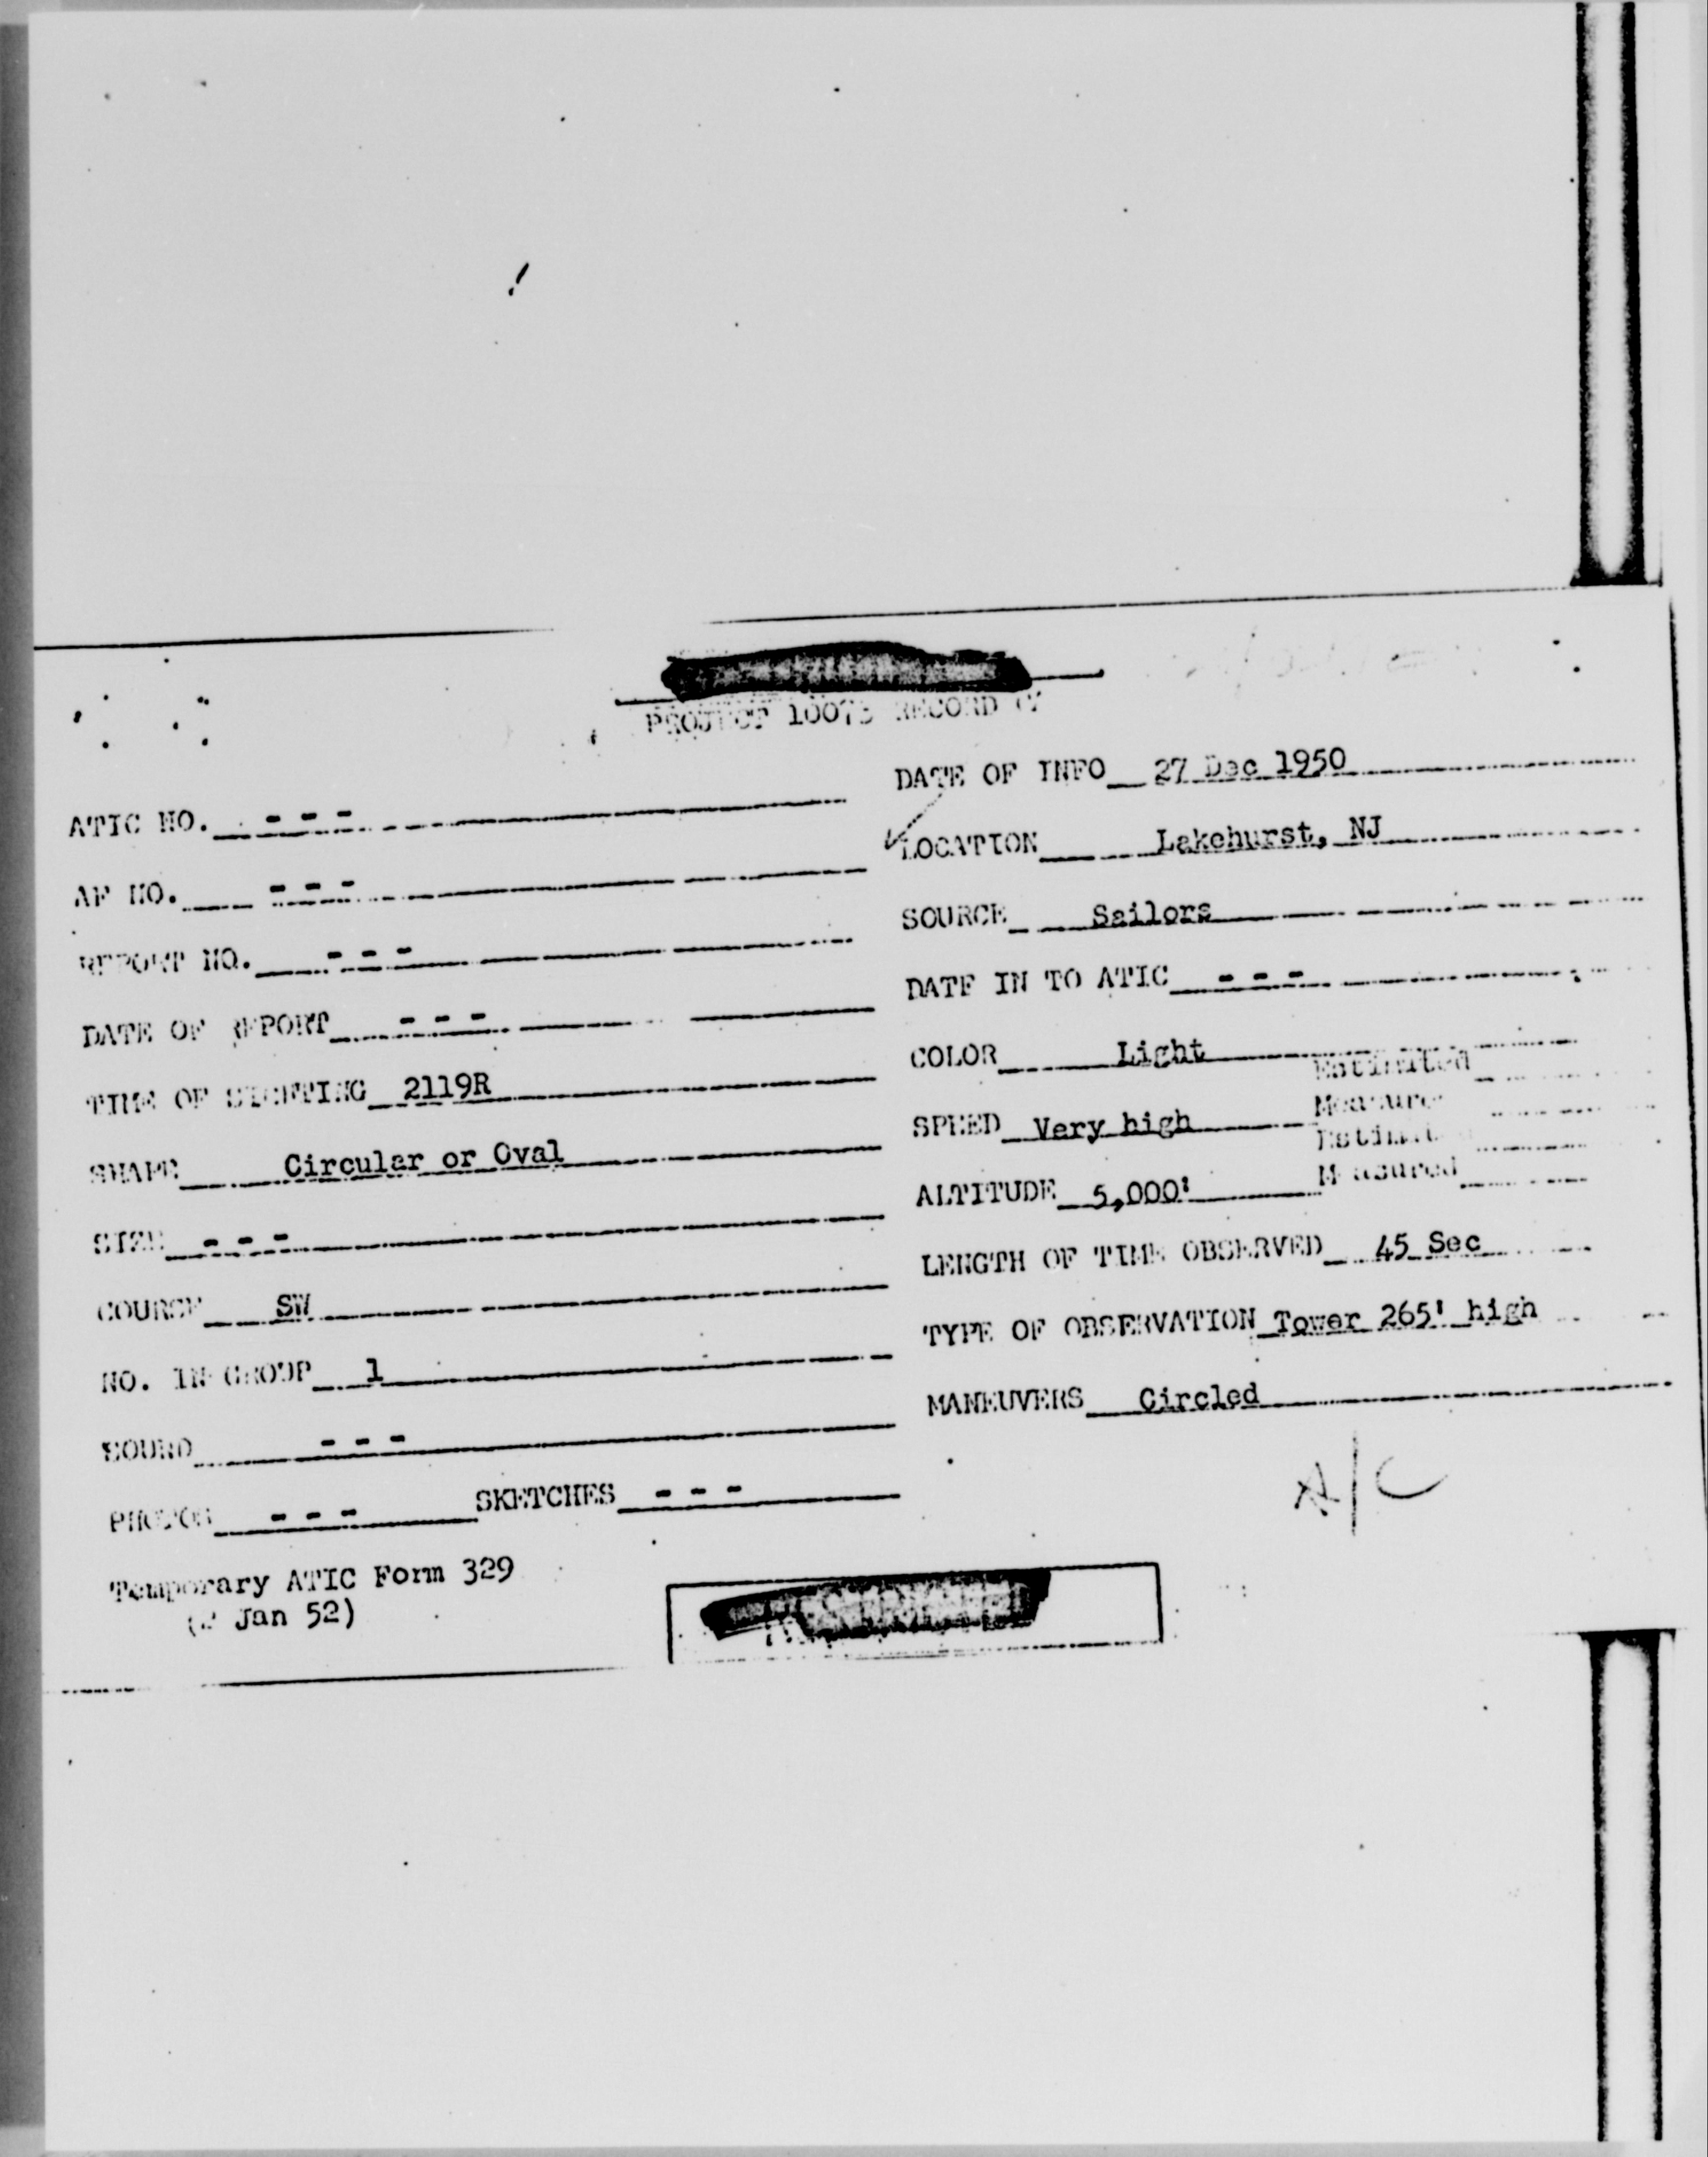 PROJECT 10073 RECORD
ATIC NO. - - -
AF NO. - - -
REPORT NO. - - -
DATE OF REPORT - - -
TIME OF SIGHTING 2119R
SHAPE Circular or Oval
SIZE - - -
COURSE SW
NO. IN GROUP 1
SOUND - - -
PHOTOS - - - SKETCHES - - -
Temporary ATIC Form 329
Jan 52)
DATE OF INFO 27 Dec 1950
LOCATION Lakehurst, NJ
SOURCE Sailors
DATE IN TO ATIC - - -
COLOR Light
Estimated
SPEED Very high Measured
Estimated
ALTITUDE 5,000' Measured
LENGTH OF TIME OBSERVED 45 Sec
TYPE OF OBSERVATION Tower 265' high
MANEUVERS Circled
A/C